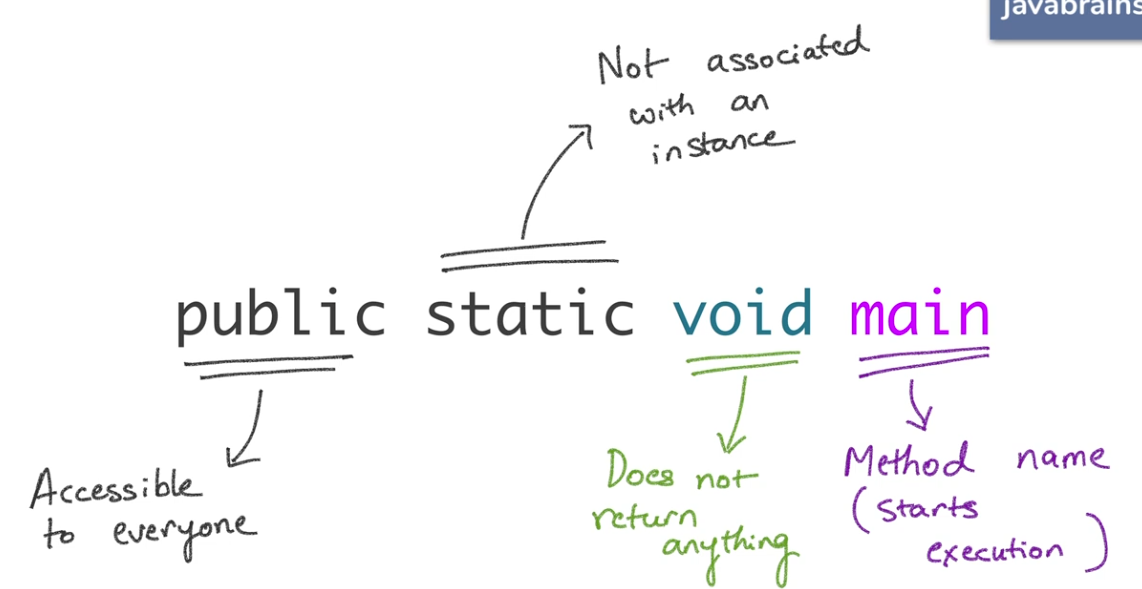 javabrains
Not associated
with an
instance
public static void main
Accessible
to everyone
Does not
return
anything
Method name
(starts
execution)